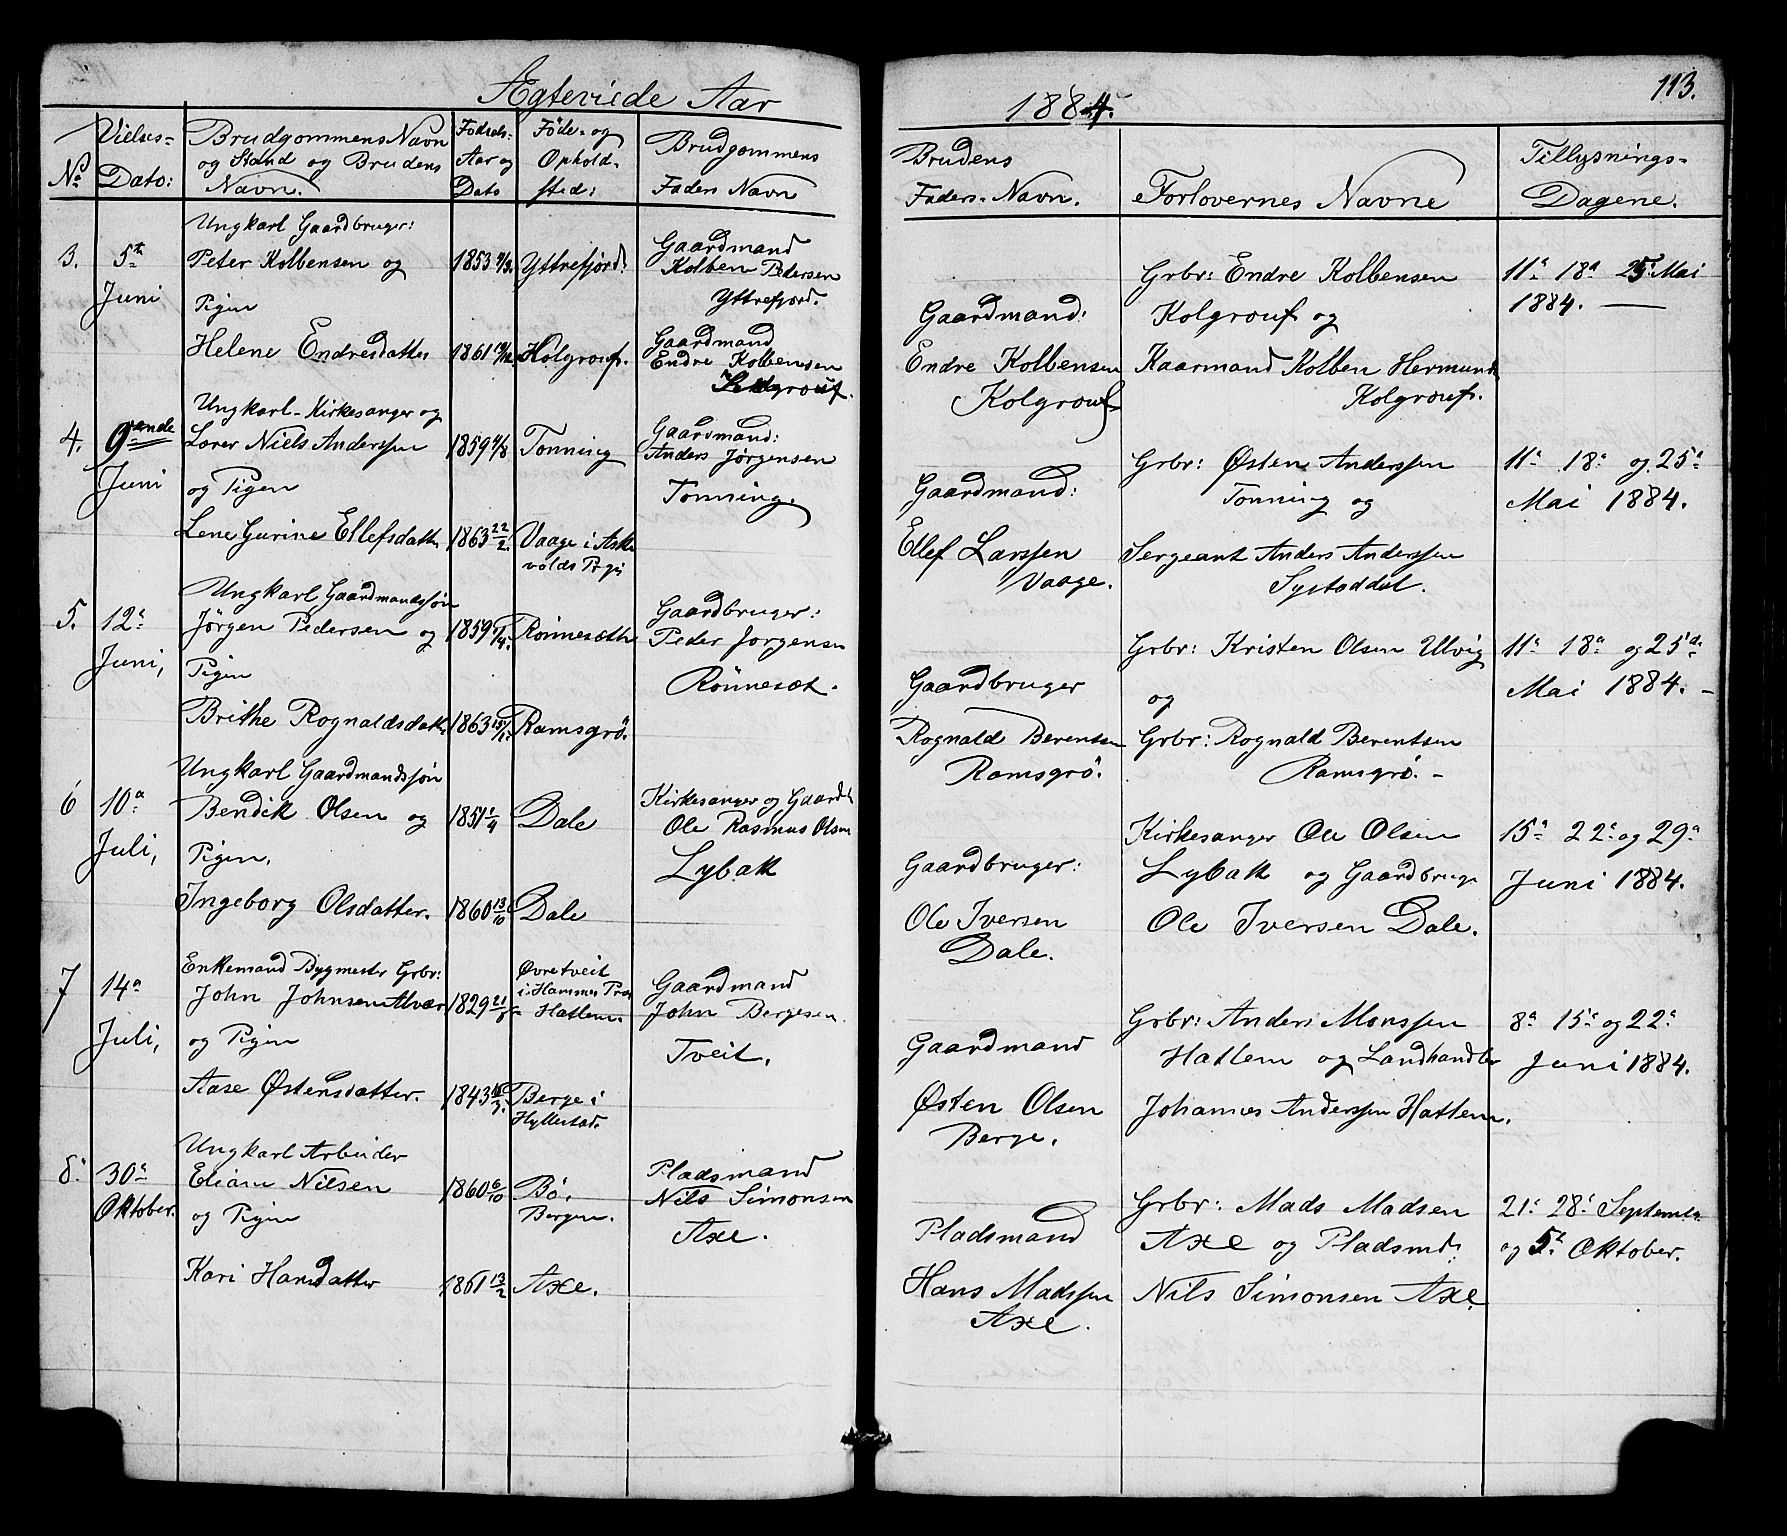 Ægteviede Aar 1884.
113.
No
Vielses-Dato:
Brudgommens Navn
og Stand og Brudens
Navn.
Fødsels-
Aar og
Dato
Føde- og
Ophold-
sted:
Brudgommens
Faders Navn
Brudens
Faders Navn.
Forlovernes Navne
Tillysnings-
Dagene.
3.
5te
Juni
Ungkarl Gaardbruger:
Peter Kolbensen og
Pigen
Helene Endresdatter
1853
1861
Yttrefjord:
Holgrouf.
Gaardmand
Kolben Pedersen
Yttrefjord.
Gaardmand
Endre Kolbensen
Gaardmand:
Endre Kolbensen
Kolgrouf
Grbr: Endre Kolbensen
Kolgrouf og
Kaarmand Kolben Hermunds
Kolgrouf.
11a 18a 25a Mai
1884. —
4.
9ende
Juni
Ungkarl Kirkesanger og
Lærer Niels Anderssen
og Pigen
Lene Gurine Ellefsdatter
1859 4/8
1863 22/2.
Tonning
Vaage i Ask-
volds Prgj
Gaardmand:
Anders Jørgensen
Tonning.
Gaardmand:
Ellef Larssen
Vaage.
Grbr: Østen Anderssen
Tonning og
Sergeant Anders Anderssen
Systaddal.
11a 18a og 25a
Mai 1884.
5.
12a
Juni,
Ungkarl Gaardmandssøn
Jörgen Pedersen og
Pigen
Brithe Rognaldsdatt.
1859
1863
Rönnesæth
Ramsgrö.
Gaardbruger:
Peder Jorgensen
Rönneset.
Gaardbruger
Rognald Berentsen
Ramsgrö.
Grbr: Kristen Olsen Ulvig
og
Grbr: Rognald Berentsen
Ramsgrö. -
11a 18a og 25a
Mai 1884. -
6
10a
Juli,
Ungkarl Gaardmandssøn
Bendik Olsen og
Pigen,
Ingeborg Olsdatter.
1851 1/4
1860 13/10
Dale
Dale
Kirkesanger og Gaardb
Ole Rasmus Olsen
Lybak
Gaardbruger:
Ole Iversen
Dale.
Kirkesanger Ole Olsen
Lybak og Gaardbruge
Ole Iversen Dale.
15a 22a og 29a
Juni 1884.
7
14a
Juli,
Enkemand Bygmester Grbr:
John Johnsen Alvær
og Pigen
Aase Østensdatter.
1829
1843
Øvretveit
i Hammer Præ
Hatlem.
Berge i
Hyllestad.
Gaardmand
John Bergesen.
Tveit.
Gaardmand
Østen Olsen
Berge.
Grbr: Anders Monssen
Hatlem og Landhandler
Johannes Anderssen Hatlem.
8a 15a og 22a
Juni 1884.
8.
30a
Oktober.
Ungkarl Arbeider
Nilsen
og Pigen
Kari Hansdatter
1860 6/10
1861 13/2
Bö.
Bergen.
Axe.
Pladsmand
Nils Simonsen
Axe.
Pladsmand
Hans Madssen
Axe.
Grbr: Mads Madsen
Axe og Pladsmd:
Nils Simonsen Axe
21a 28a September
og 5a Oktober.